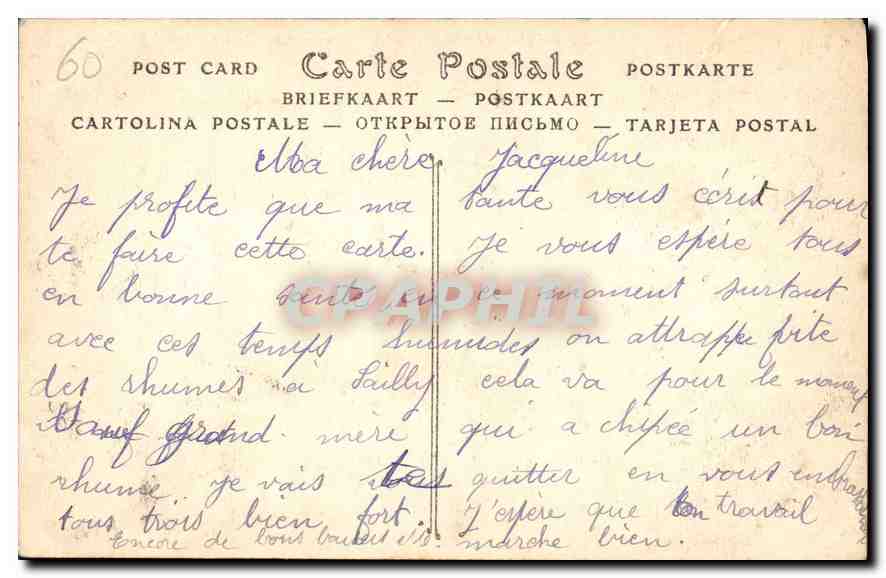 60
POST CARD Carte Postale POSTKARTE
BRIEFKAART — POSTKAART
CARTOLINA POSTALE — ОТКРЫТОЕ ПИСЬМО — TARJETA POSTAL
Ma chère Jacqueline
Je profite que ma tante vous écrit pour
te faire cette carte. Je vous espère tous
en bonne santé en ce moment surtout
avec ces temps humides on attrappe vite
des rhumes à Sailly cela va pour le moment
sauf grand mère qui a chipée un bon
rhume. Je vais te quitter en vous embrassant
tous trois bien fort. J'espère que ton travail
Encore de bons baisers marche bien.
CPAPHIL